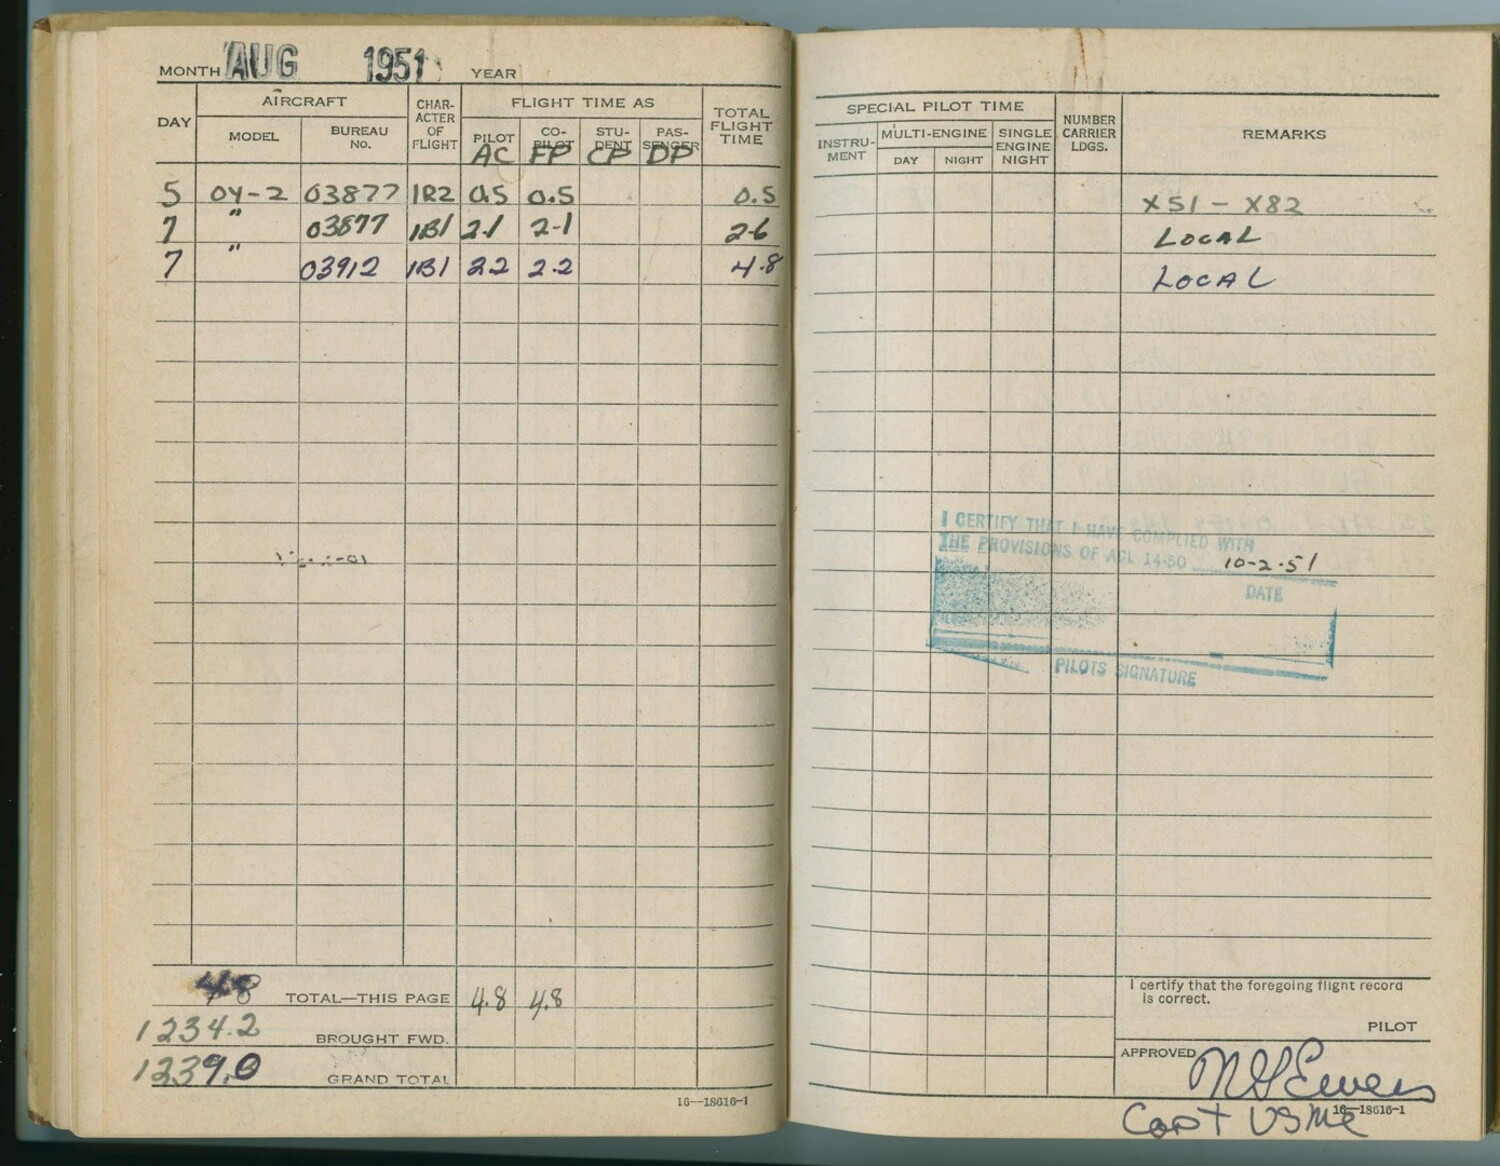 MONTH AUG 1951 YEAR
DAY
AIRCRAFT
MODEL
BUREAU No.
CHAR-
ACTER
OF
FLIGHT
FLIGHT TIME AS
PILOT AC
CO-PILOT FP
STU-DENT CP
PAS-SENGER DP
TOTAL
FLIGHT
TIME
5 OY-2 03877 1R2 0.5 0.5 0.5
7 " 03877 1B1 2.1 2-1 2-6
7 " 03912 1B1 2.2 2.2 4.8
4.8 TOTAL—THIS PAGE 4.8 4.8
1234.2 BROUGHT FWD.
1239.0 GRAND TOTAL
16—18616-1
SPECIAL PILOT TIME
INSTRU-
MENT
MULTI-ENGINE
DAY
NIGHT
SINGLE
ENGINE
NIGHT
NUMBER
CARRIER
LDGS.
REMARKS
X51 - X82
LOCAL
LOCAL
I CERTIFY THAT I HAVE COMPLIED WITH
THE PROVISIONS OF ACL 14-50 10-2-51
DATE
PILOTS SIGNATURE
I certify that the foregoing flight record
is correct.
PILOT
APPROVED
16—18616-1
Capt USMC